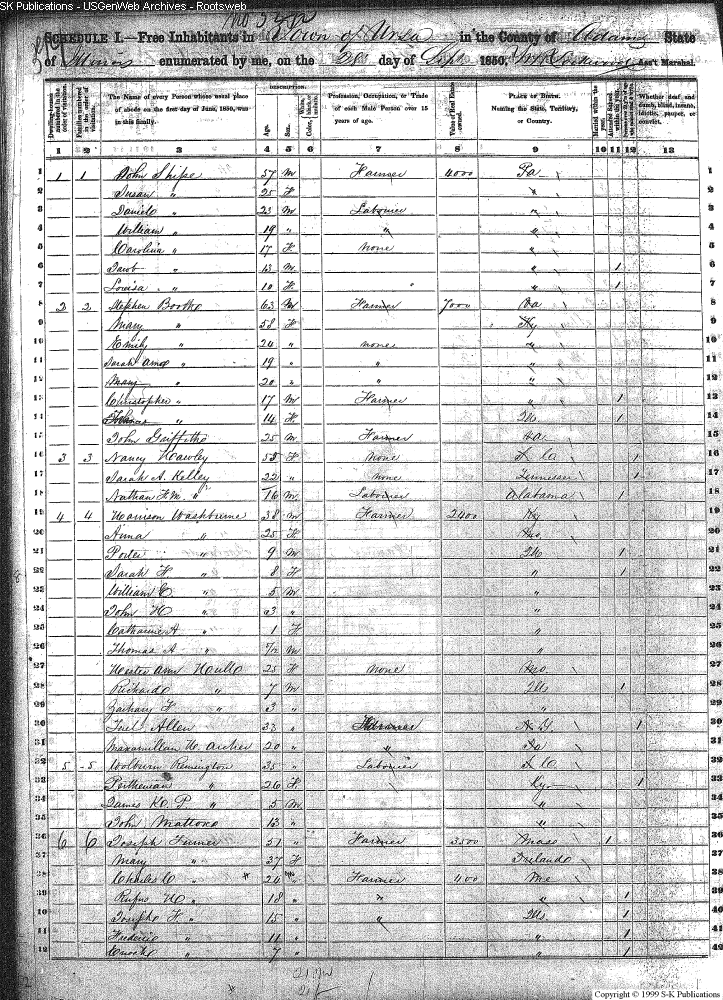 SK Publications - USGenWeb Archives - Rootsweb
SCHEDULE I.—Free Inhabitants in Town of Ursa in the County of Adams State
of Illinois enumerated by me, on the 28 day of Sept 1850. Ass't Marshal.
DESCRIPTION.
Dwelling-houses numbered in the order of visitation.
Families numbered in the order of visitation.
The Name of every Person whose usual place of abode on the first day of June, 1850, was in this family.
Age.
Sex.
Color.
Profession, Occupation, or Trade of each Male Person over 15 years of age.
Value of Real Estate owned.
PLACE OF BIRTH. Naming the State, Territory, or Country.
Married within the year.
Attended School within the year.
Whether deaf and dumb, blind, insane, idiotic, pauper, or convict.
1 2 3 4 5 6 7 8 9 10 11 12 13
1 1 1 John Shipe 57 M Farmer 4000 Pa 1
2 Susan " 25 F " 2
3 Daniel " 23 M Labourer " 3
4 William " 19 " " " 4
5 Carolina " 17 F None " 5
6 Jacob " 13 M " 1 6
7 Louisa " 10 F " 1 7
8 2 2 Stephen Booth 63 M Farmer 7000 Va 8
9 Mary " 58 F Ky 9
10 Emily " 24 " none " 10
11 Sarah Ann " 19 " " " 11
12 Mary " 20 " " 12
13 Christopher " 17 M Farmer " 1 13
14 " 14 F Ill 1 14
15 John Griffith 25 M Farmer 15
16 3 3 Nancy Hawley 55 F None N C 1 16
17 Sarah A. Kelley 22 " none Tennessee 1 17
18 Nathan F. M. " 16 M Labourer Alabama 1 18
19 4 4 Harrison Washburne 38 M Farmer 2400 Ky 19
20 Anna " 25 F Mo 20
21 Porter " 9 M Ill 1 21
22 Sarah F. " 8 F " 1 22
23 William C " 5 M " 23
24 John H " 3 " " 24
25 Catharine A " 1 F " 25
26 Thomas A " 7/12 M " 26
27 Hester Ann Hulls 25 F None Mo 27
28 Richard " 7 M Ill 1 28
29 Zachary T " 3 " " 29
30 Joel Allen 33 " Farmer N Y. 1 30
31 Maxamillan H. Archer 20 " " 31
32 5 5 Colburn Remington 35 " Labourer N C 32
33 " 26 F Ky. 1 33
34 James K. P. " 5 M " 34
35 John Mattox 13 " " 35
36 6 6 Joseph Turner 51 " Farmer 3500 Mass 1 36
37 Mary " 37 F Ireland 37
38 Charles C " 24 M Farmer 400 Me 38
39 Rufus H " 18 " " " 1 39
40 Joseph F. " 15 " " Ill 1 40
41 Frederic " 11 " " 1 41
42 Enoch " 7 " " 1 42
Copyright © 1999 S-K Publications